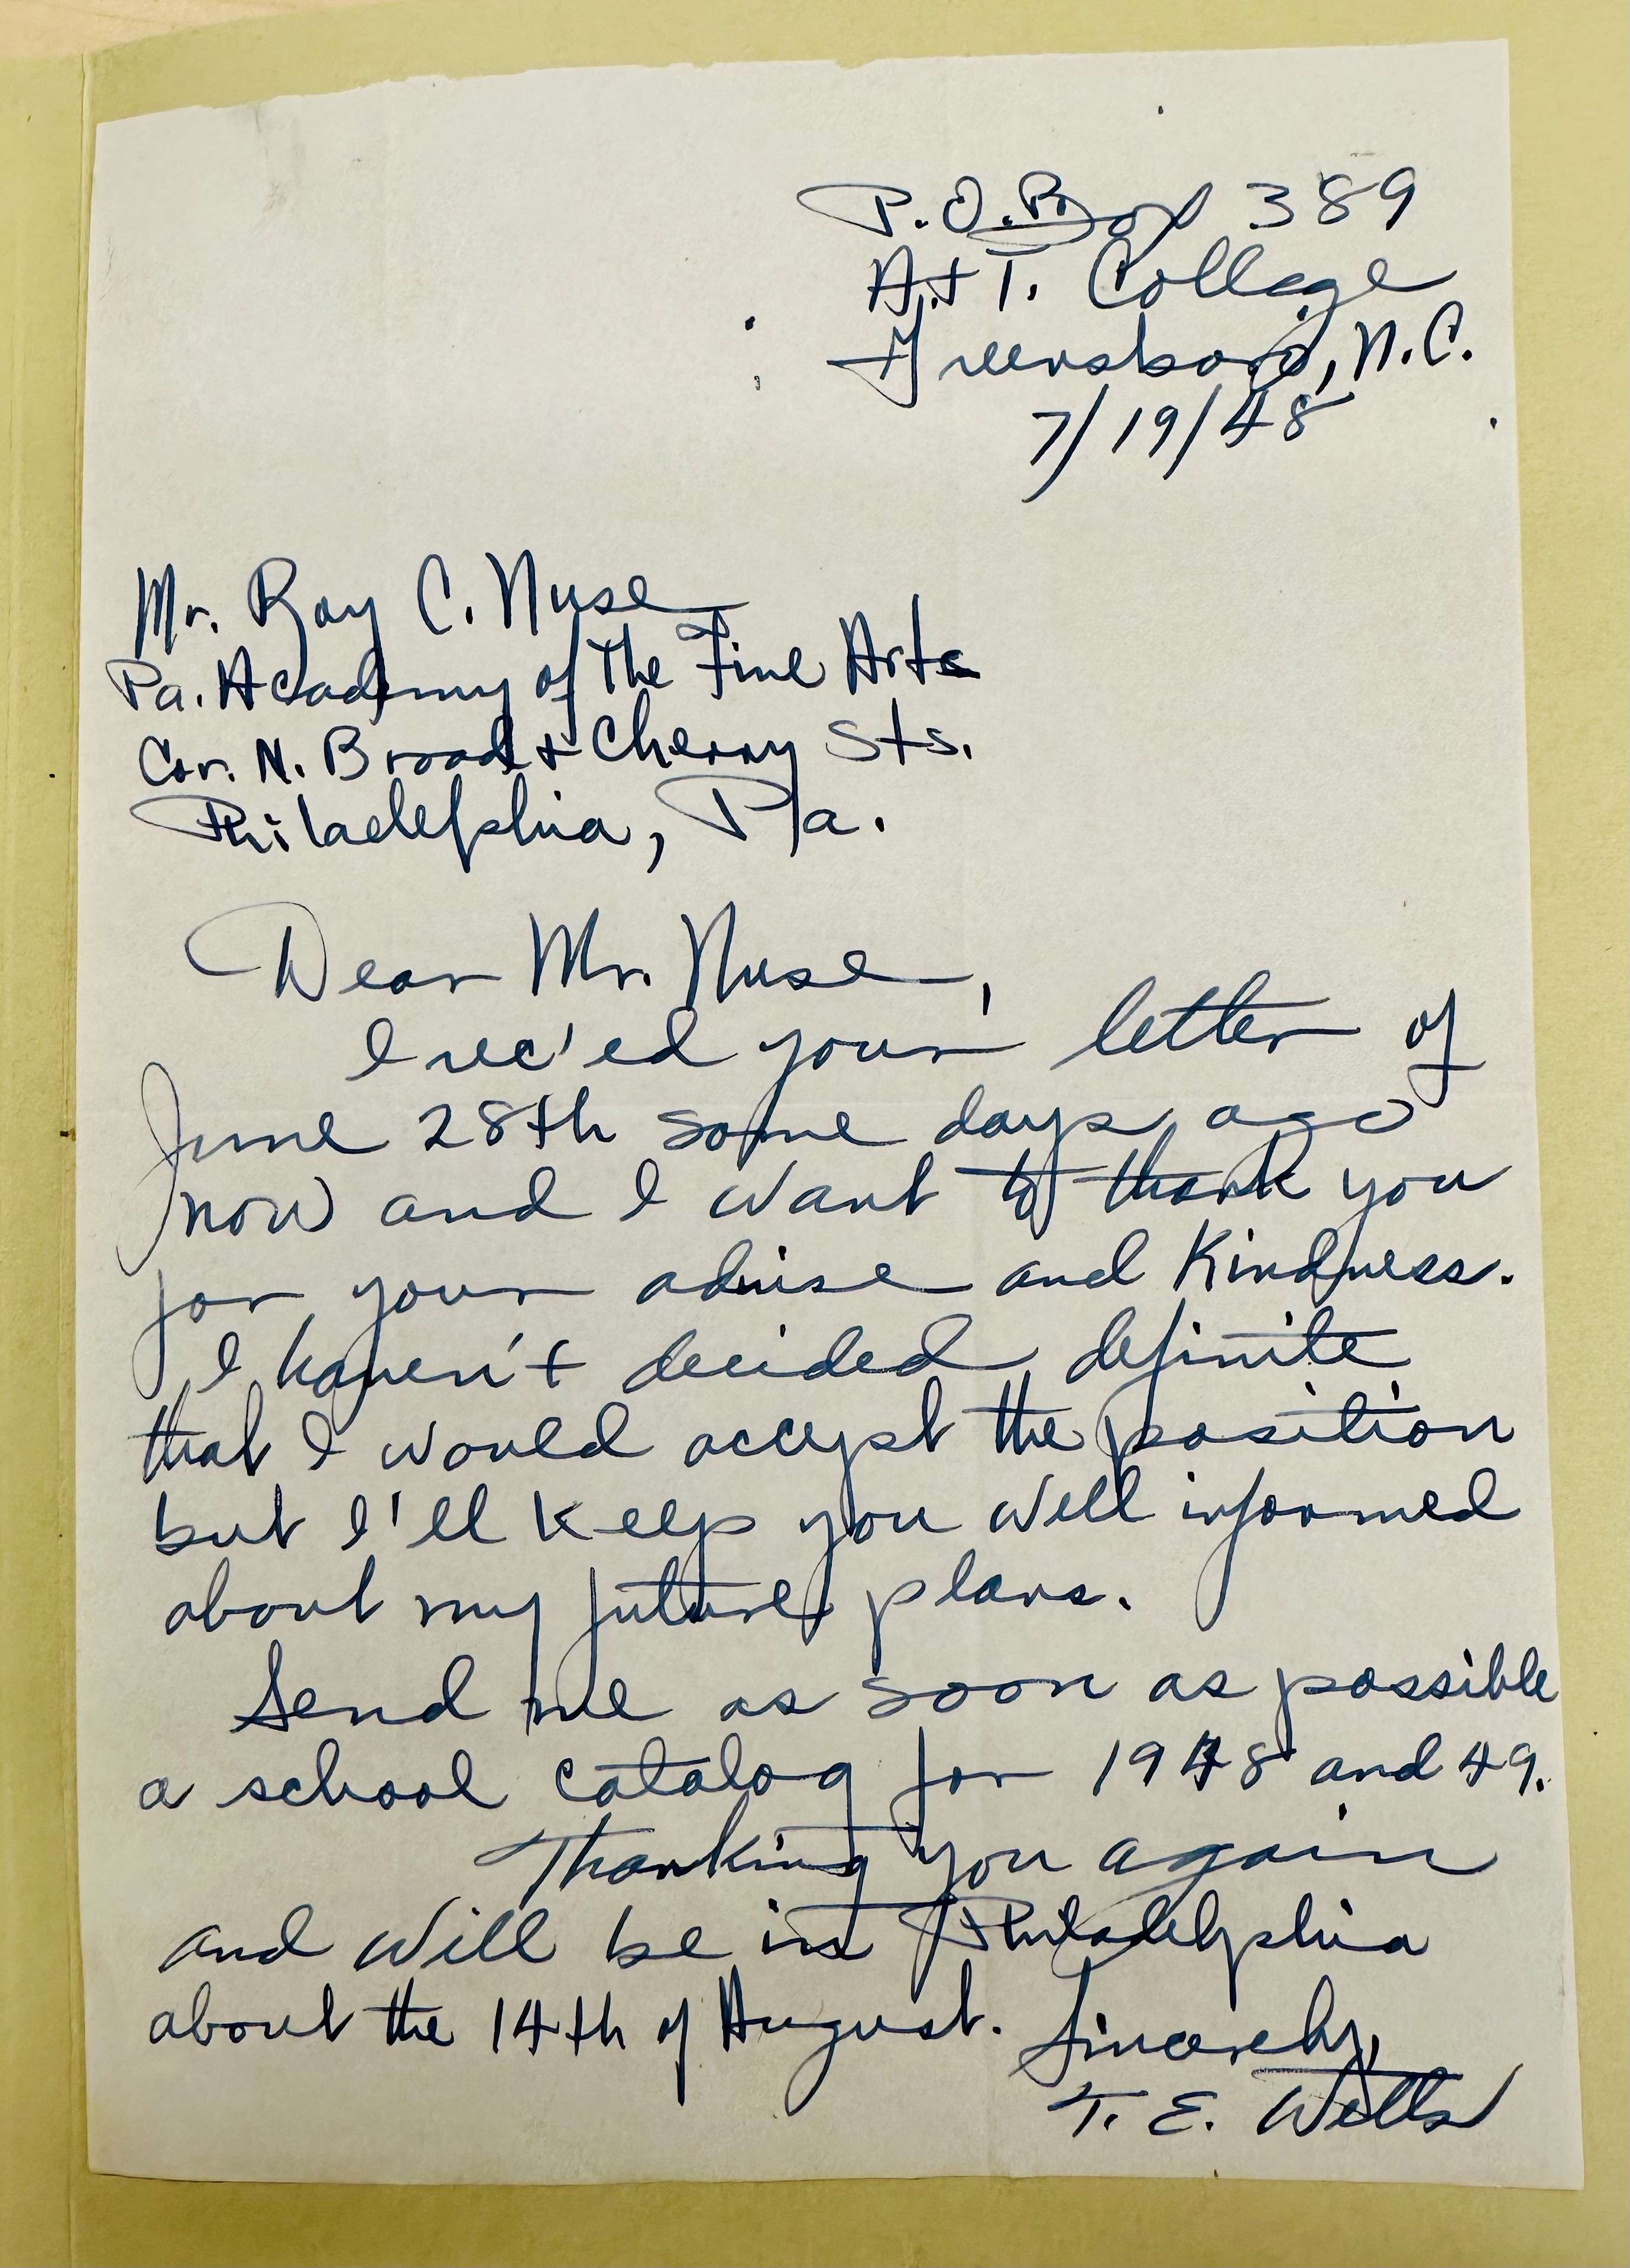 P.O. Box 389
A. + T. College
Greensboro, N.C.
7/19/48
Mr. Roy C. Nuse
Pa. Academy of The Fine Arts
Cor. N. Broad + Cherry Sts.
Philadelphia, Pa.
Dear Mr. Nuse,
I rec'ed your letter of
June 28th some days ago
now and I want to thank you
for your advise and kindness.
I haven't decided definite
that I would accept the position
but I'll keep you well informed
about my future plans.
Send me as soon as possible
a school catalog for 1948 and 49.
Thanking you again
and will be in Philadelphia
about the 14th of August.
Sincerely,
T. E. Wells